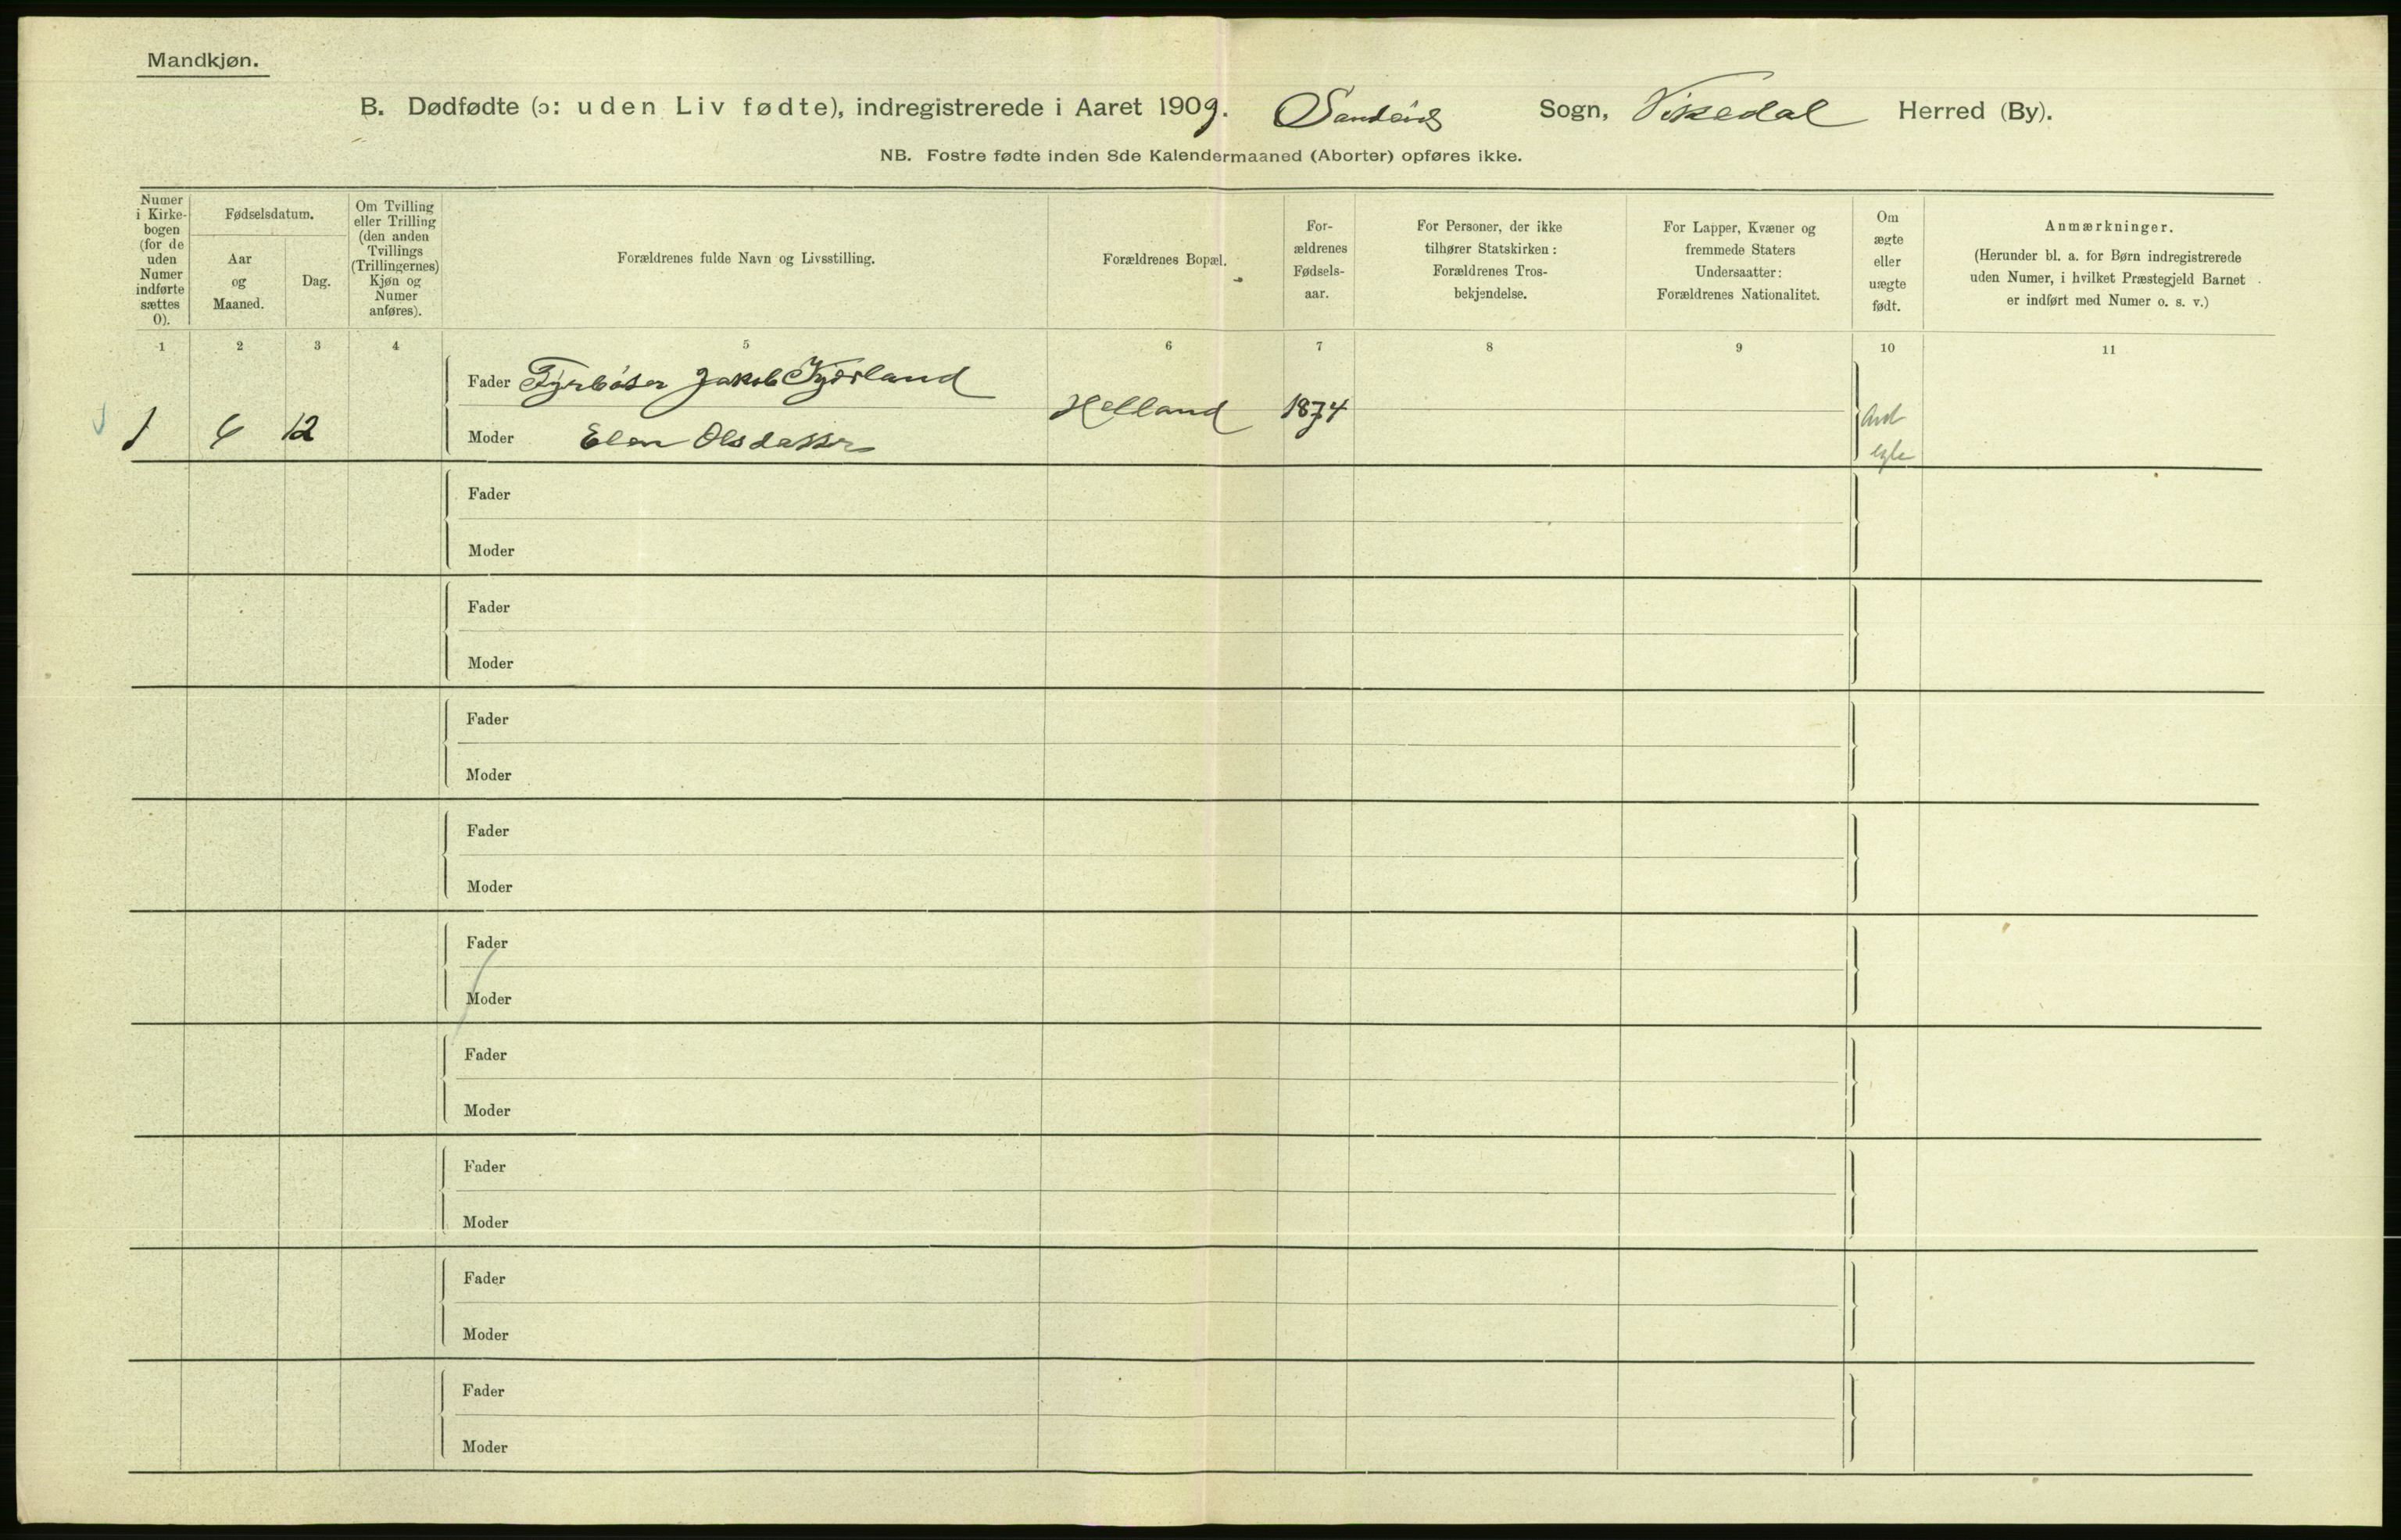 Mandkjøn.
B. Dødfødte (ɔ: uden Liv fødte), indregistrerede i Aaret 1909. Sandeid Sogn, Vikedal Herred (By).
NB. Fostre fødte inden 8de Kalendermaaned (Aborter) opføres ikke.
Numer i Kirke-bogen (for de uden Numer indførte sættes 0).
Fødselsdatum.
Aar og Maaned.
Dag.
Om Tvilling eller Trilling (den anden Tvillings (Trillingernes) Kjøn og Numer anføres).
Forældrenes fulde Navn og Livsstilling.
Forældrenes Bopæl.
For-ældrenes Fødsels-aar.
For Personer, der ikke tilhører Statskirken: Forældrenes Tros-bekjendelse.
For Lapper, Kvæner og fremmede Staters Undersaatter: Forældrenes Nationalitet.
Om ægte eller uægte født.
Anmærkninger.
(Herunder bl. a. for Børn indregistrerede uden Numer, i hvilket Præstegjeld Barnet er indført med Numer o. s. v.)
1 2 3 4 5 6 7 8 9 10 11
Fader Fyrbøder Jakob
1 6 12 Helland 1874
Moder Elen Olsdatter
Fader
Moder
Fader
Moder
Fader
Moder
Fader
Moder
Fader
Moder
Fader
Moder
Fader
Moder
Fader
Moder
Fader
Moder